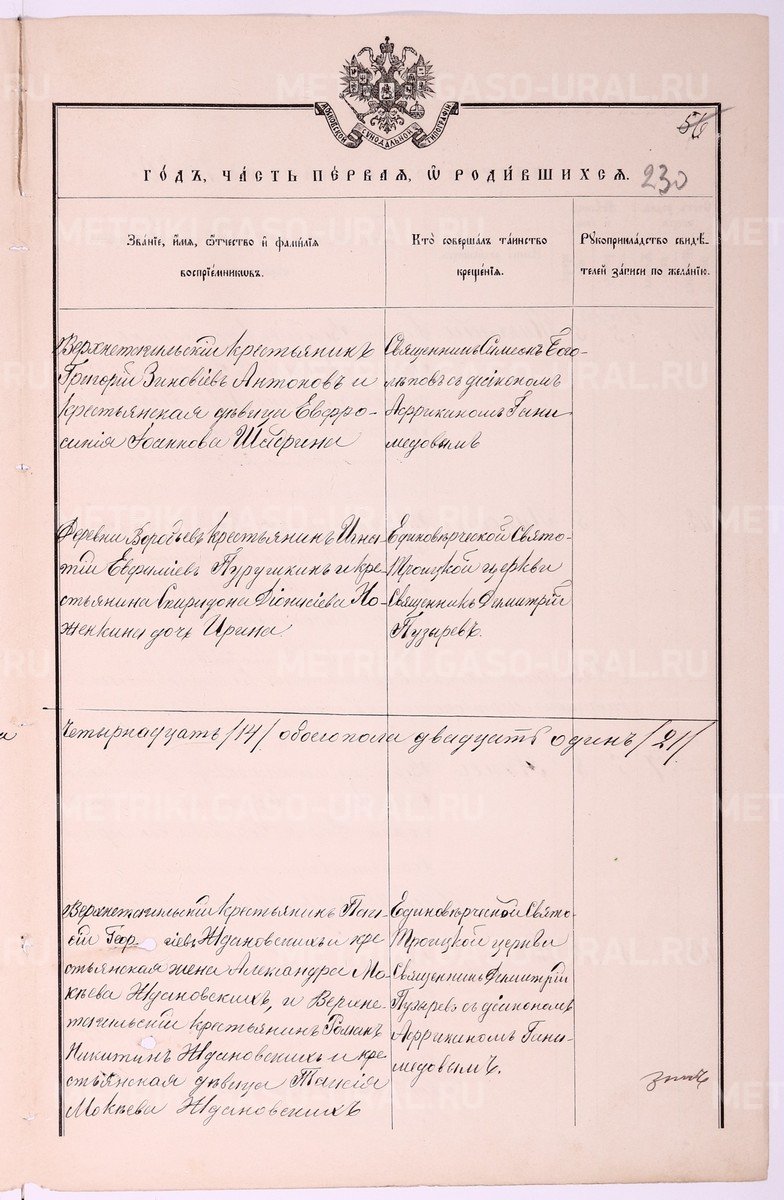 МОСКОВСКОЙ СУНОДАЛЬНОЙ ТИПОГРАФІИ
56
ГО́ДЪ, ЧА́СТЬ ПЕ́РВАЯ, Ѿ РОДИ́ВШИХСЯ.
230
Зва́нїе, и́мя, ѻ҆́тчество и҆ фами́лїя
воспрїе́мникѡвъ.
Кто̀ соверша́лъ та́инство
креще́нїя.
Рꙋкоприкла́дство свидѣ́-
телей за́писи по жела́нїю.
Верхнетагильскій крестьянинъ
Григорій Зиновіевъ Антоновъ и
крестьянская дѣвица Евфро-
синія Іоаннова
Священникъ Симеонъ Бого-
лѣповъ съ діакономъ
Аффрикіномъ Гани
медовымъ
Деревни Воробьевъ крестьянинъ Игна-
тій Евфиміевъ Пурушкинъ и кре
стьянина Спиридона Діонисіева Но-
женкина дочь Ирина
Единовѣрческой Свято-
Троицкой церкви
Священникъ Димитрій
Пузыревъ.
Четырнадцать /14/ обоего пола двадцать одинъ /21/.
Верхнетагильскій крестьянинъ
Геор гіевъ Ждановскихъ и кре
стьянская жена Александра Мо-
кѣева Ждановскихъ, и Верхне-
тагильскій крестьянинъ Романъ
Никитинъ Ждановскихъ и кре-
стьянская дѣвица Таисія
Мокѣева Ждановскихъ
Единовѣрческой Свято-
Троицкой церкви
Священникъ Димитрій
Пузыревъ съ діакономъ
Аффрикіномъ Гани-
медовымъ.
METRIKI.GASO-URAL.RU